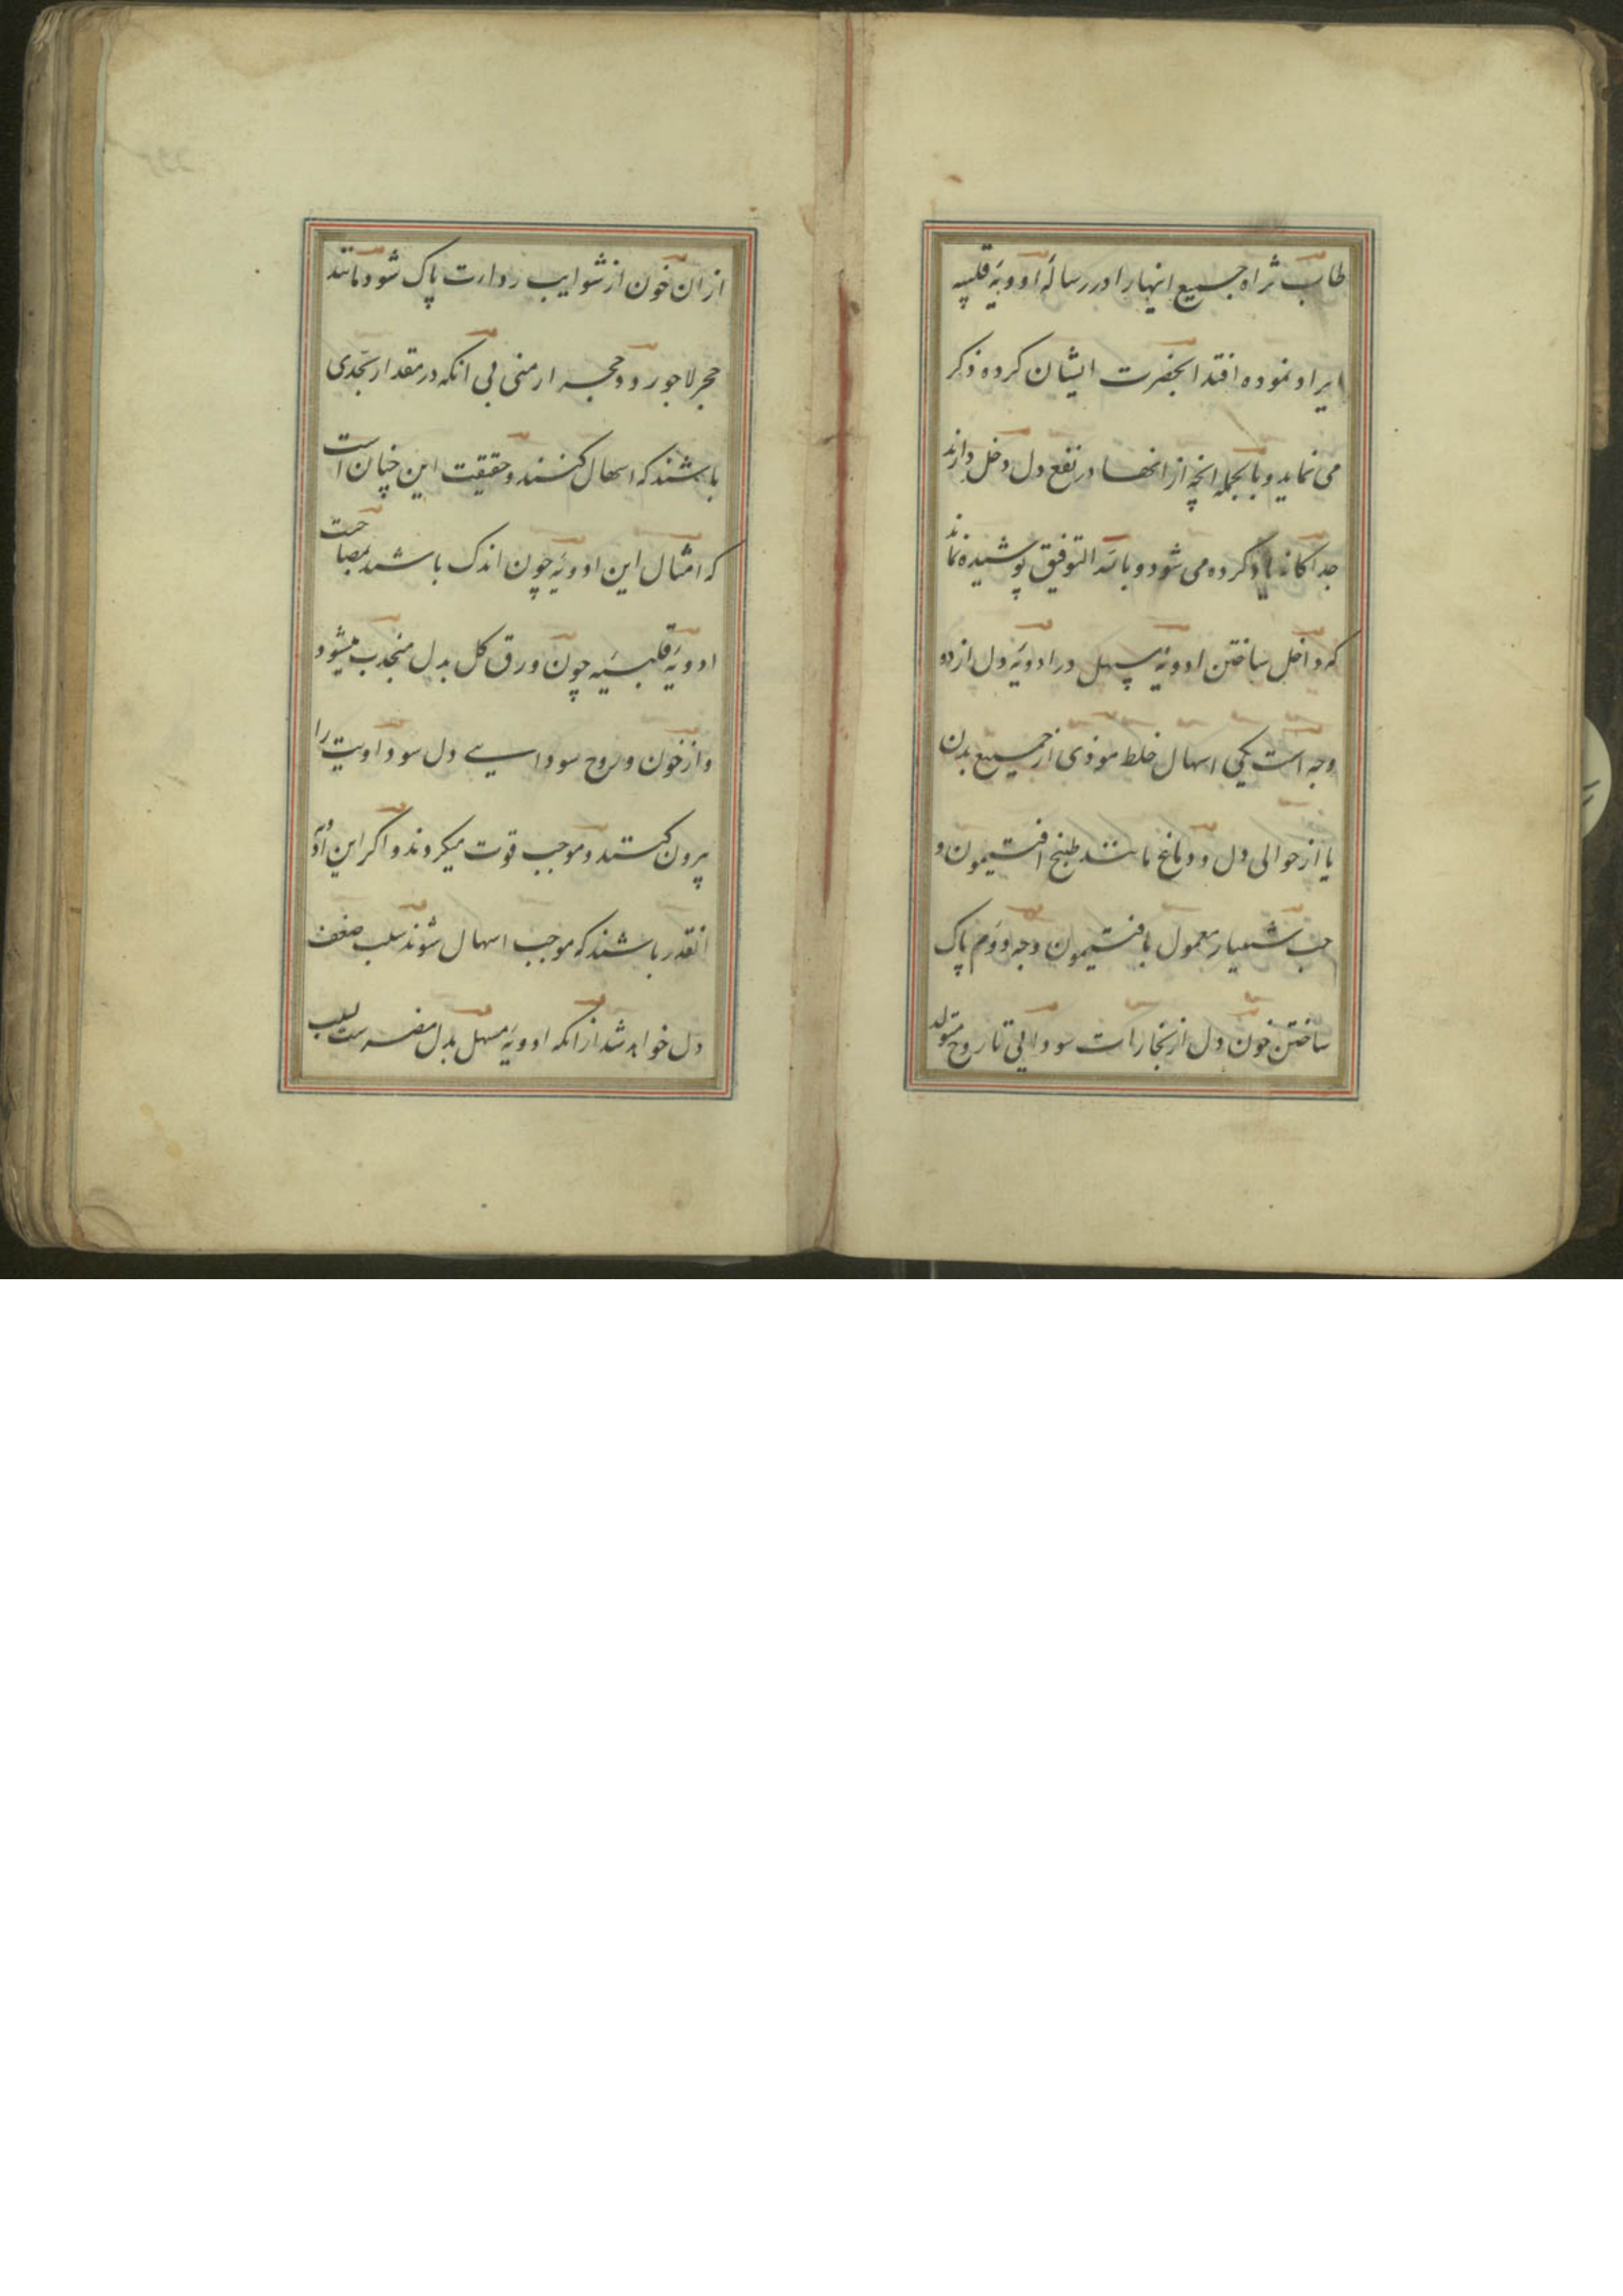 طاب ثراه جمیع اینها را در رسالهٔ ادویهٔ قلبیه
ایراد نموده اقتدا بحضرت ایشان کرده ذکر
می نماید و بالجمله انچه از انها در نفع دل دخل دارند
جداگانه یاد کرده می شود و بالله التوفیق پوشیده نماند
که داخل ساختن ادویهٔ مسهل در ادویهٔ دل از دو
وجه است یکی اسهال خلط موذی از جمیع بدن
یا از حوالی دل و دماغ مانند طبیخ افتیمون و
حب شبیار معمول بافتیمون وجه دوم پاک
ساختن خون دل از بخارات سودائی تا روح متولد
از ان خون از شوایب رداءت پاک شود مانند
حجر لاجورد و حجر ارمنی بی انکه در مقدار بحدی
باشند که اسهال کنند و حقیقت این چنان است
که امثال این ادویه چون اندک باشند بمصاحبت
ادویهٔ قلبیه چون ورق گل بدل منجذب میشود
و از خون و روح سوداسیے دل سوداویت را
بیرون کنند و موجب قوت میکردند و اگر این ادویه
انقدر باشند که موجب اسهال شوند سبب ضعف
دل خواهد شد از انکه ادویهٔ مسهل بدل مضرست بسبب